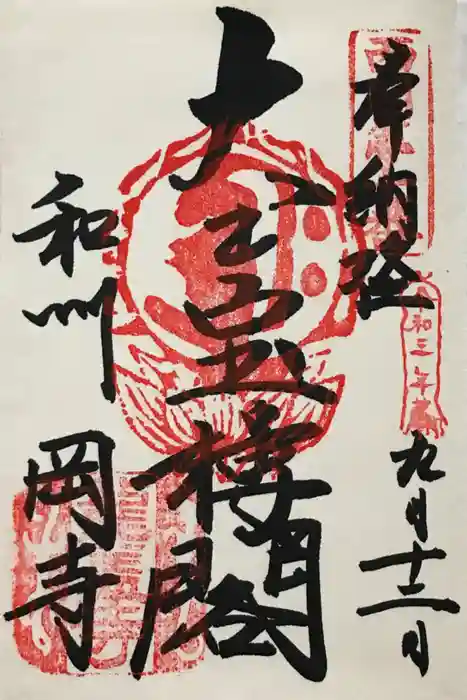 奉納経
令和三年
九月十二日
大宝楼閣
和州
岡寺